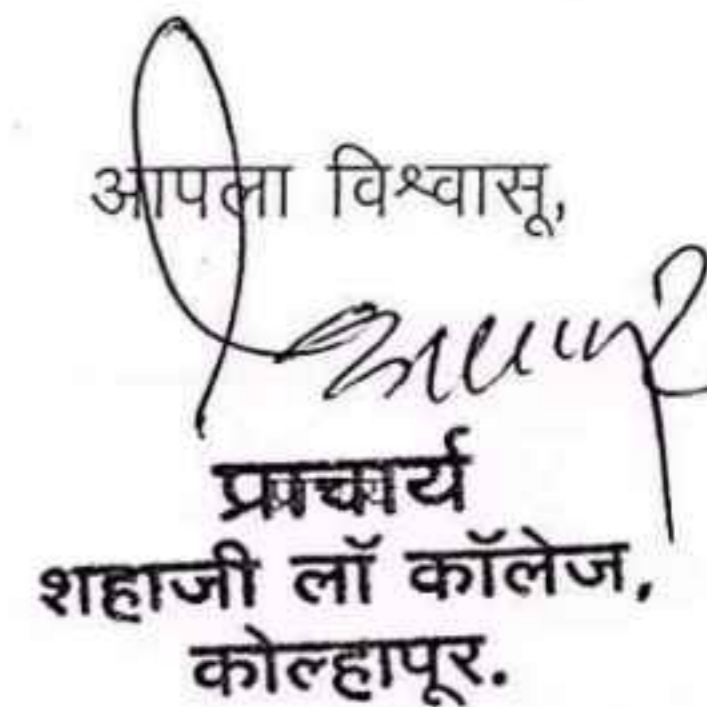 आपला विश्वासू,
प्राचार्य
शहाजी लॉ कॉलेज,
कोल्हापूर.